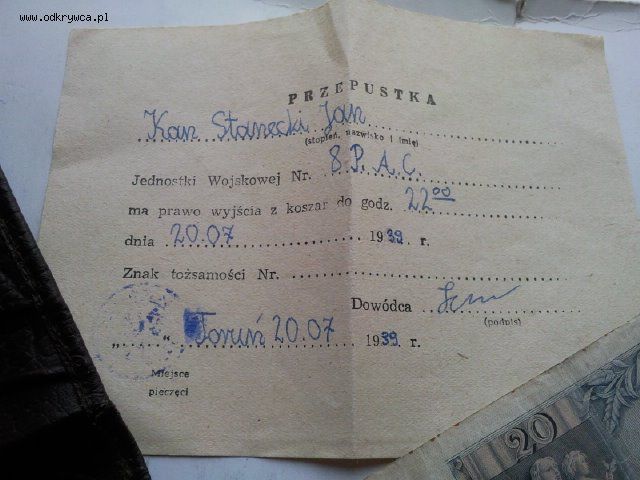 www.odkrywca.pl
PRZEPUSTKA
Kan Stanecki Jan
(stopień, nazwisko i imię)
Jednostki Wojskowej Nr. 8 P. A. C.
ma prawo wyjścia z koszar do godz. 22⁰⁰
dnia 20.07 1939 r.
Znak tożsamości Nr.
Dowódca
(podpis)
„ “ Toruń 20.07 1939 r.
Miejsce
pieczęci
20